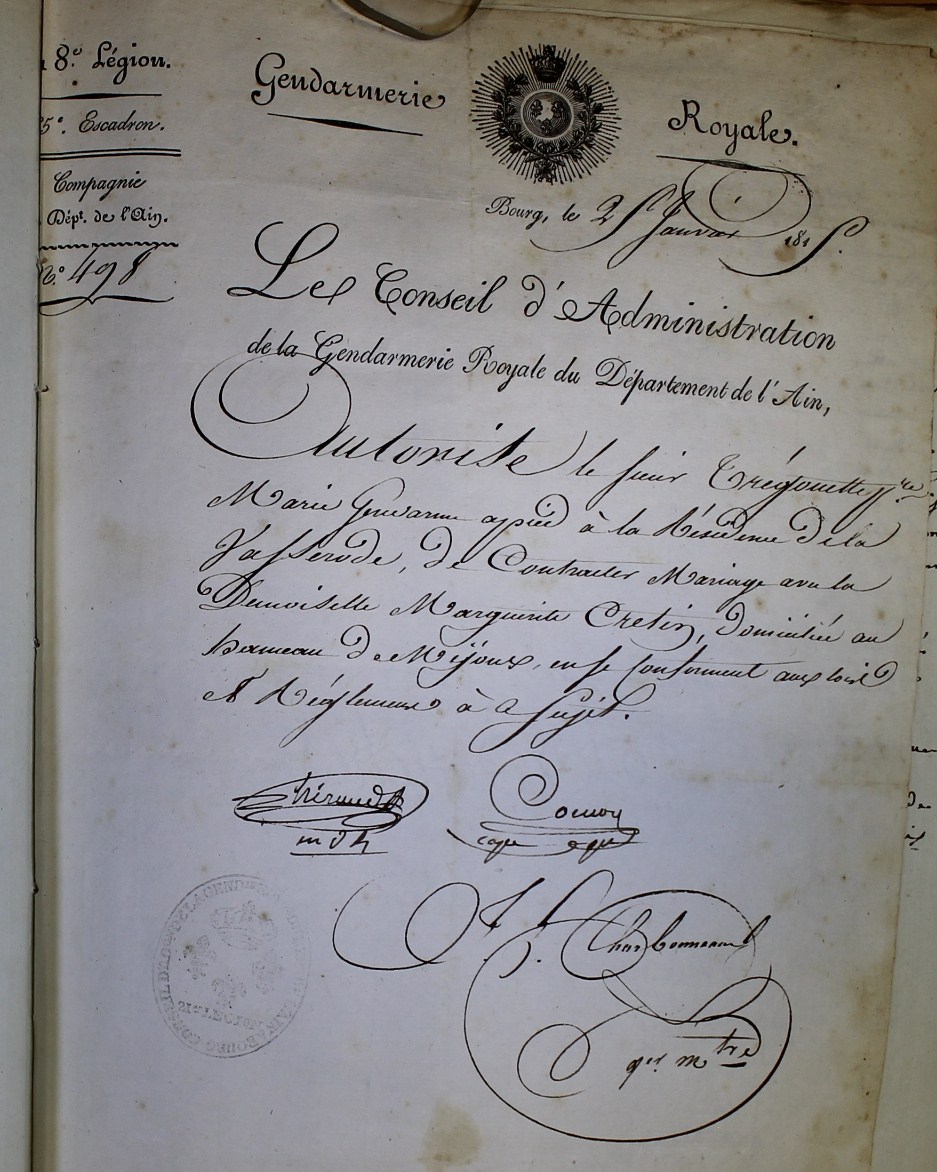 8.e Légion.
5e. Escadron.
Compagnie
Dépt. de l'Ain.
No. 498
Gendarmerie Royale.
Bourg, le 25 Janvier 1815.
Le Conseil d'Administration
de la Gendarmerie Royale du Département de l'Ain,
Autorise le sieur Trégouette
Marie Gendarme apied à la Résidence de la
Vasserode, de Contracter Mariage avec la
Demoiselle Marguerite Cretin, domiciliée au
hameau de Mijoux, en se conformant aux loix
et Réglemens à ce sujet.
J. f. Charbonneau
qer mtre